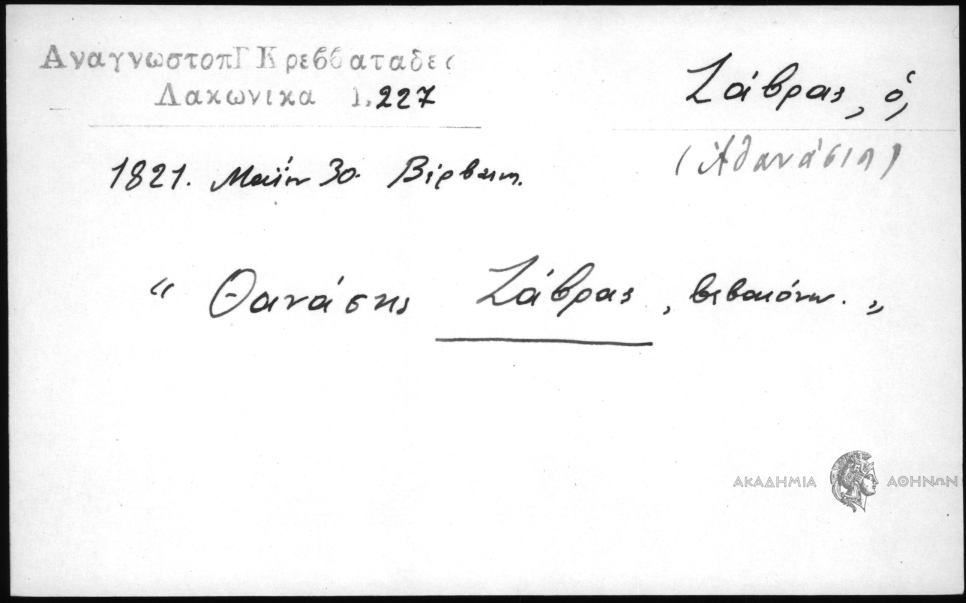 ΑναγνωστοπΓ Κρεββαταδες
Λακωνικα 1,227
Ζάβρας, ὁ,
(Ἀθανάσιος)
1821. Μαΐου 30. Βέρβαινα.
“ Θανάσης Ζάβρας, βεβαιόνω. „
ΑΚΑΔΗΜΙΑ ΑΘΗΝΩΝ